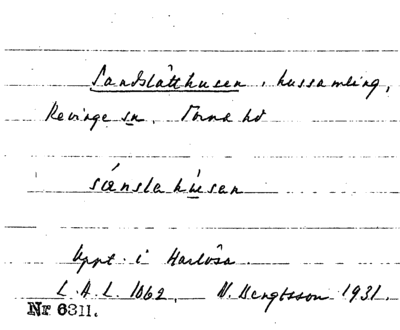 Sandslätthusen, hussamling,
Revinge sn. Torna hd
sánsla húsan
Uppt. i Harlösa.
L.A.L. 1062. N. Bengtsson 1931.
Nr 6311.